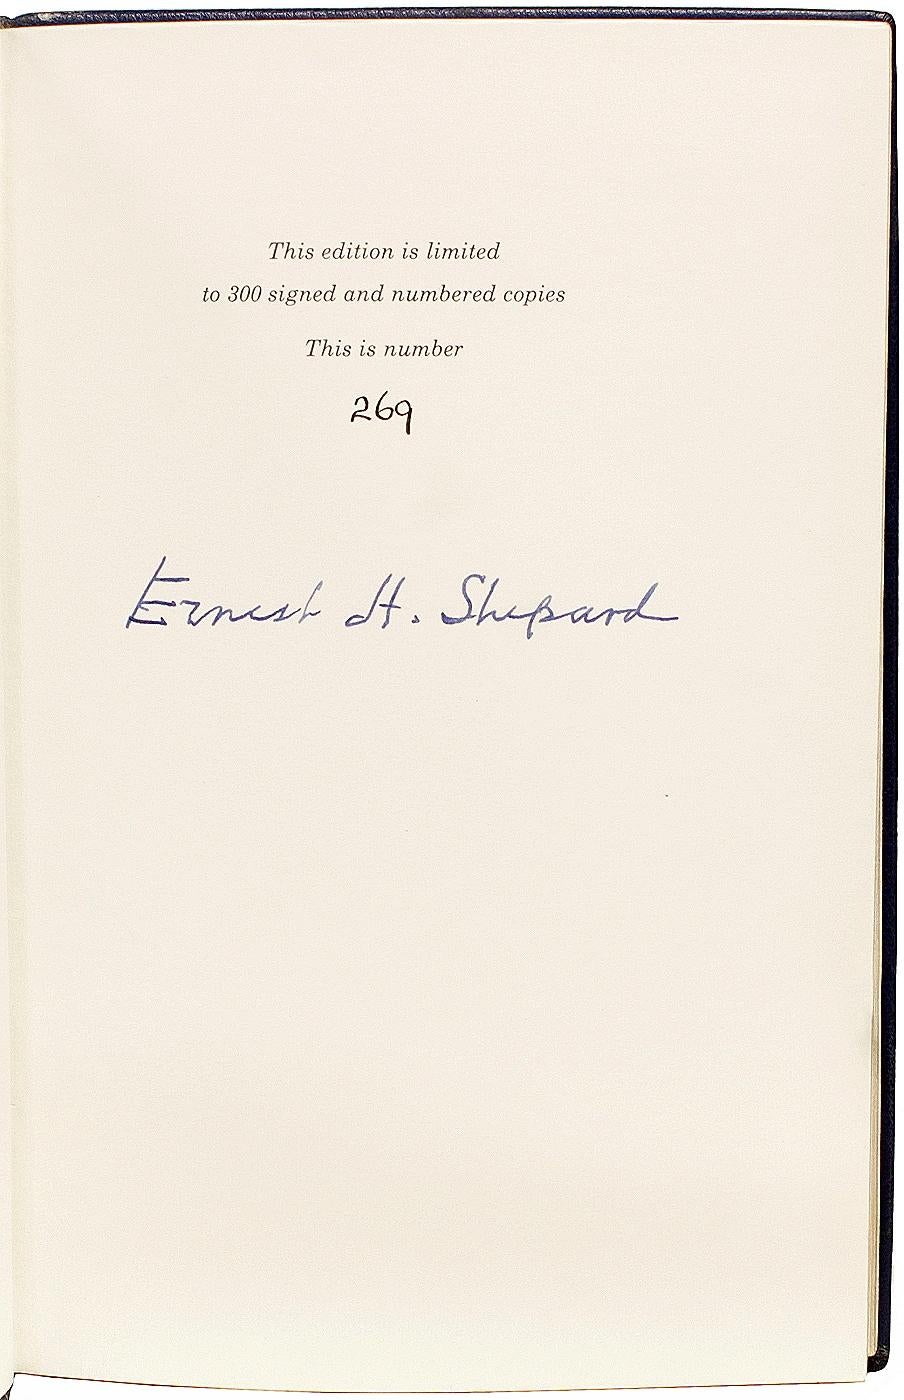 This edition is limited
to 300 signed and numbered copies
This is number
269
Ernest H. Shepard